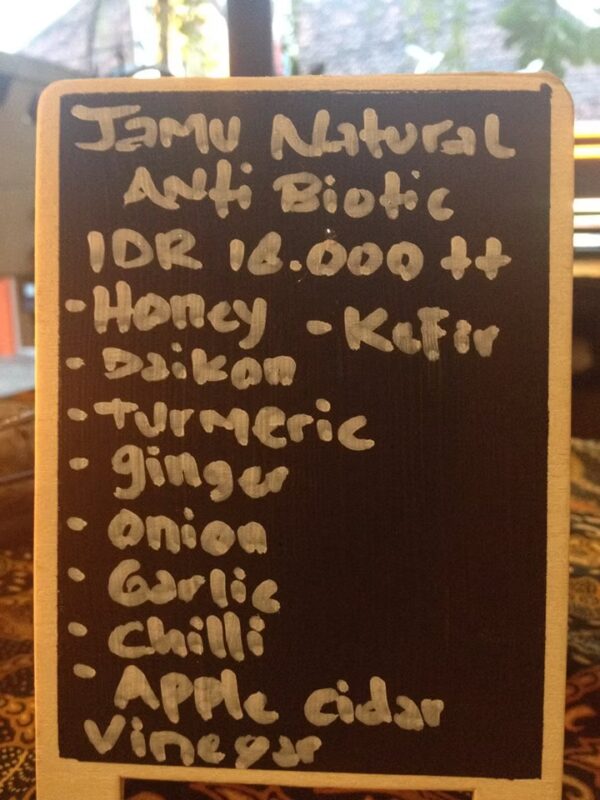 Jamu Natural
Anti Biotic
IDR 16.000 ++
- Honey - Kefir
- Daikon
- Turmeric
- ginger
- onion
- Garlic
- Chilli
- Apple cidar
Vinegar